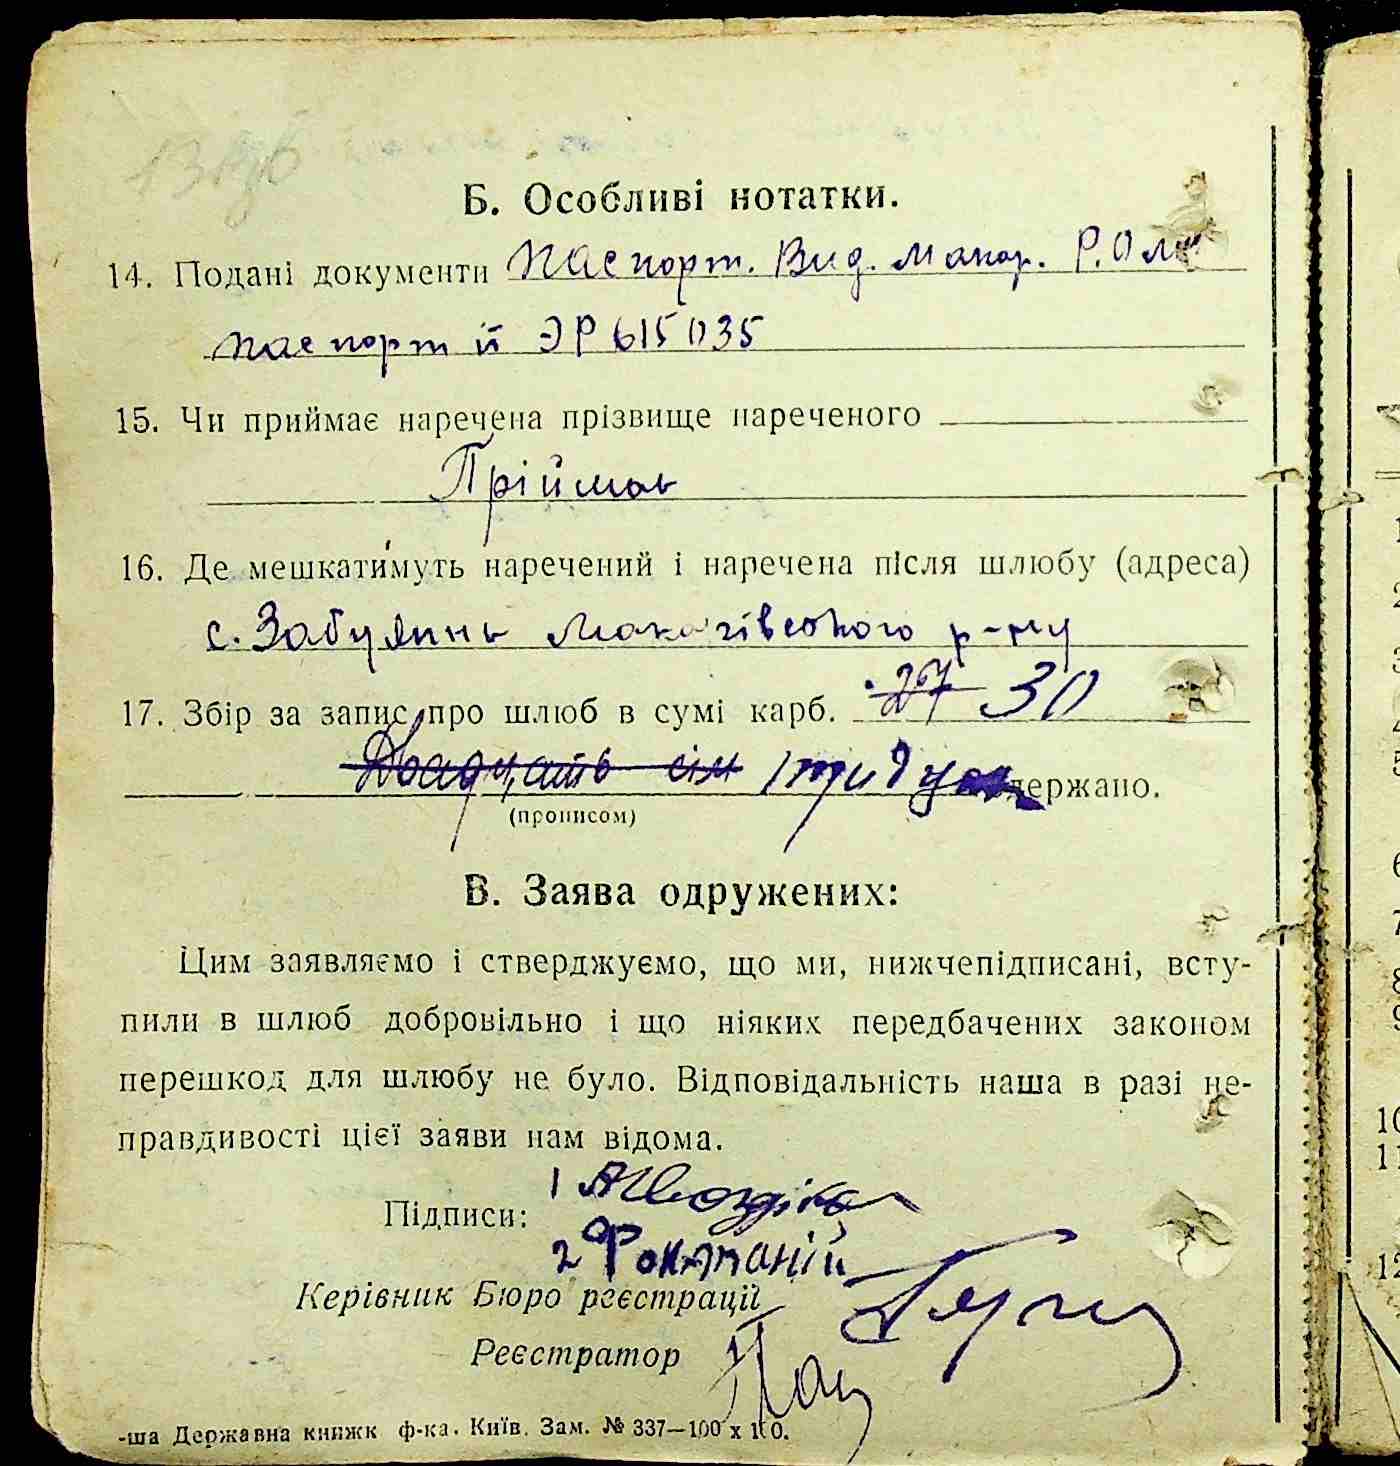 Б. Особливі нотатки.
14. Подані документи Паспорт. Вид. Макар. Р.О
паспорт й ЭР 615035
15. Чи приймає наречена прізвище нареченого
Приймає
16. Де мешкатимуть наречений і наречена після шлюбу (адреса)
с. Забуяння Макарівського р-ну
17. Збір за запис про шлюб в сумі карб. 27 30
Двадцять сім тридц одержано.
(прописом)
В. Заява одружених:
Цим заявляємо і стверджуємо, що ми, нижчепідписані, всту-
пили в шлюб добровільно і що ніяких передбачених законом
перешкод для шлюбу не було. Відповідальність наша в разі не-
правдивості цієї заяви нам відома.
Підписи: 1
2
Керівник Бюро реєстрації
Реєстратор
-ша Державна книжк ф-ка. Київ. Зам. № 337—100 х 100.